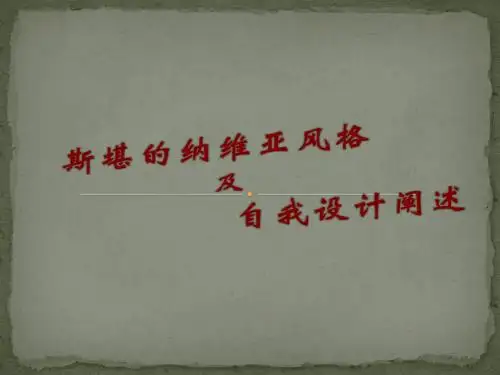 斯堪的纳维亚风格
及
自我设计阐述